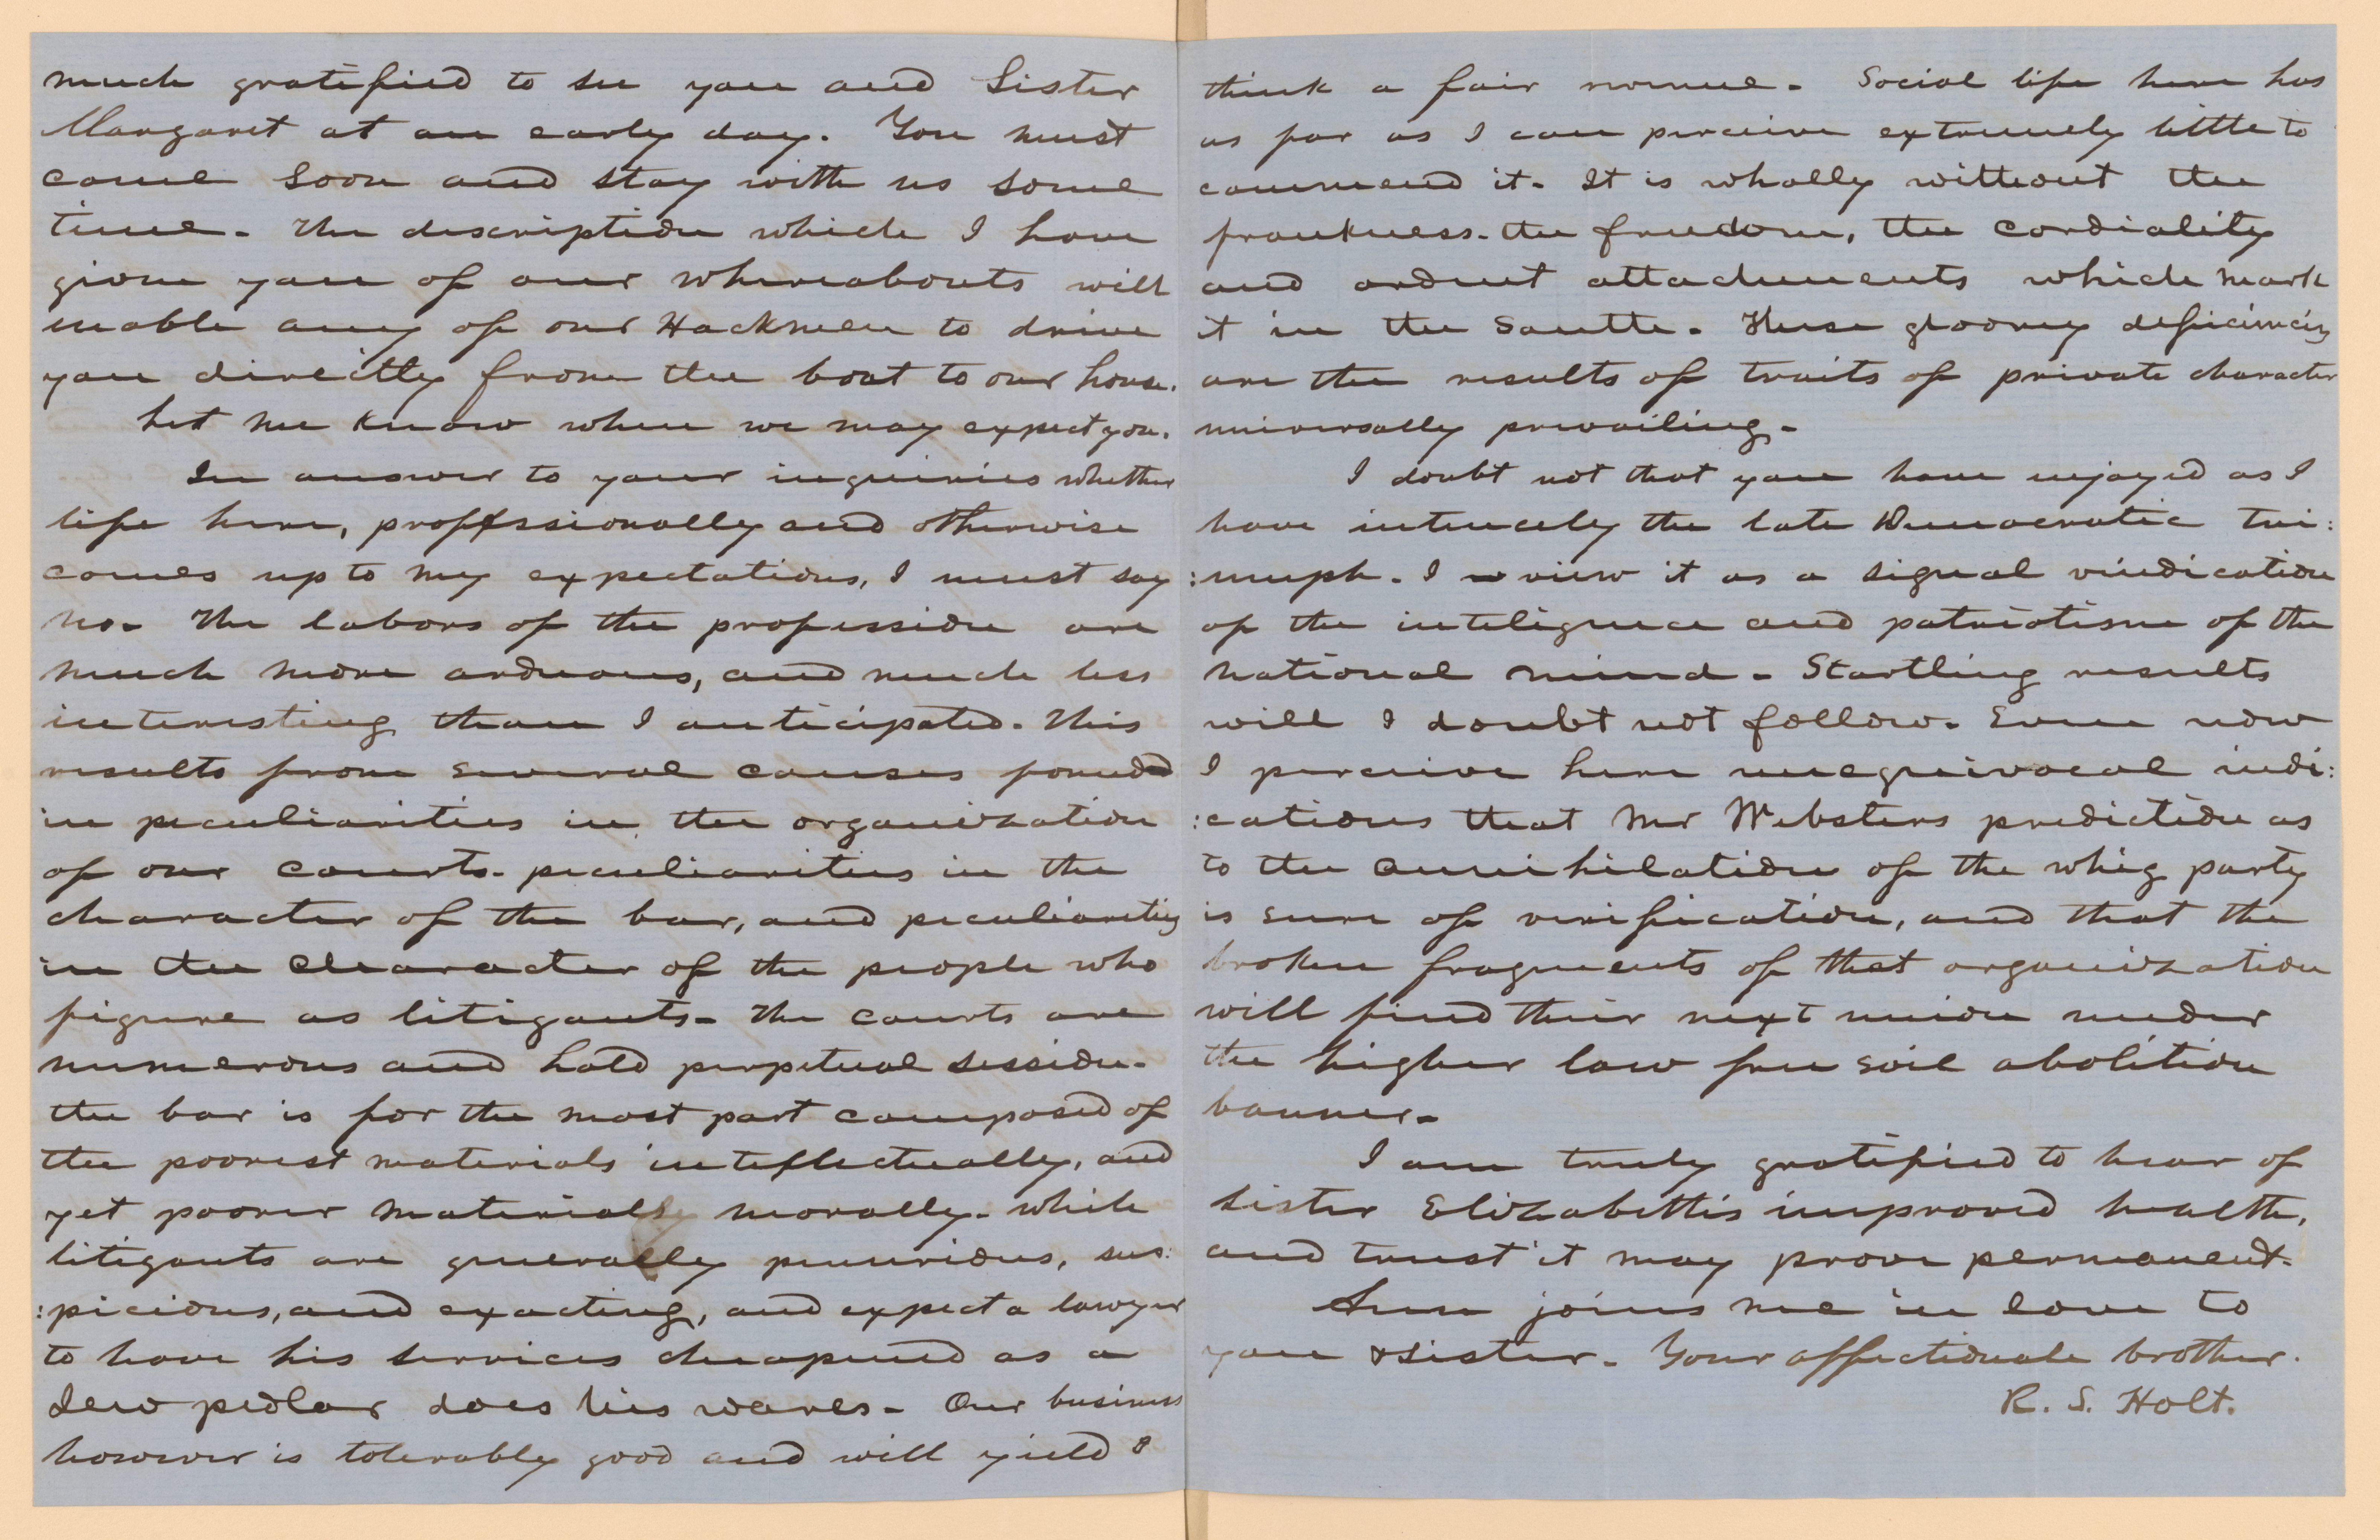 much gratified to see you and Sister
Margaret at an early day. You must
come soon and stay with us some
time. The description which I have
given you of our whereabouts will
enable any of our Hackmen to drive
you directly from the boat to our house.
Let me know when we may expect you.
In answer to your inquiries whether
life here, professionally and otherwise
comes up to my expectations, I must say
no. The labors of the profession are
much more arduous, and much less
interesting than I anticipated. This
results from several causes found
in peculiarities in the organization
of our courts. peculiarities in the
character of the bar, and peculiarities
in the character of the people who
figure as litigants. The courts are
numerous and hold perpetual session.
the bar is for the most part composed of
the poorest materials intellectually, and
yet poorer materials morally. while
litigants are generally penurious, sus:
:picious, and exacting, and expect a lawyer
to have his services cheapened as a
Jew pedlar does his wares. Our business
however is tolerably good and will yield I
think a fair revenue. Social life here has
as far as I can perceive extremely little to
commend it. It is wholly without the
frankness. the freedom, the cordiality
and ardent attachments which mark
it in the South. These gloomy deficiencies
are the results of traits of private character
universally prevailing.
I doubt not that you have enjoyed as I
have intensely the late Democratic tri:
:umph. I view it as a signal vindication
of the inteligence and patriotism of the
national mind. Startling results
will I doubt not follow. Even now
I perceive here unequivocal indi:
:cations that Mr Websters prediction as
to the annihilation of the whig party
is sure of verification, and that the
broken fragments of that organization
will find their next union under
the higher law free soil abolition
banner.
I am truly gratified to hear of
sister Elizabeths improved health,
and trust it may prove permanent.
Ann joins me in love to
you & sister. Your affectionate brother.
R. S. Holt.